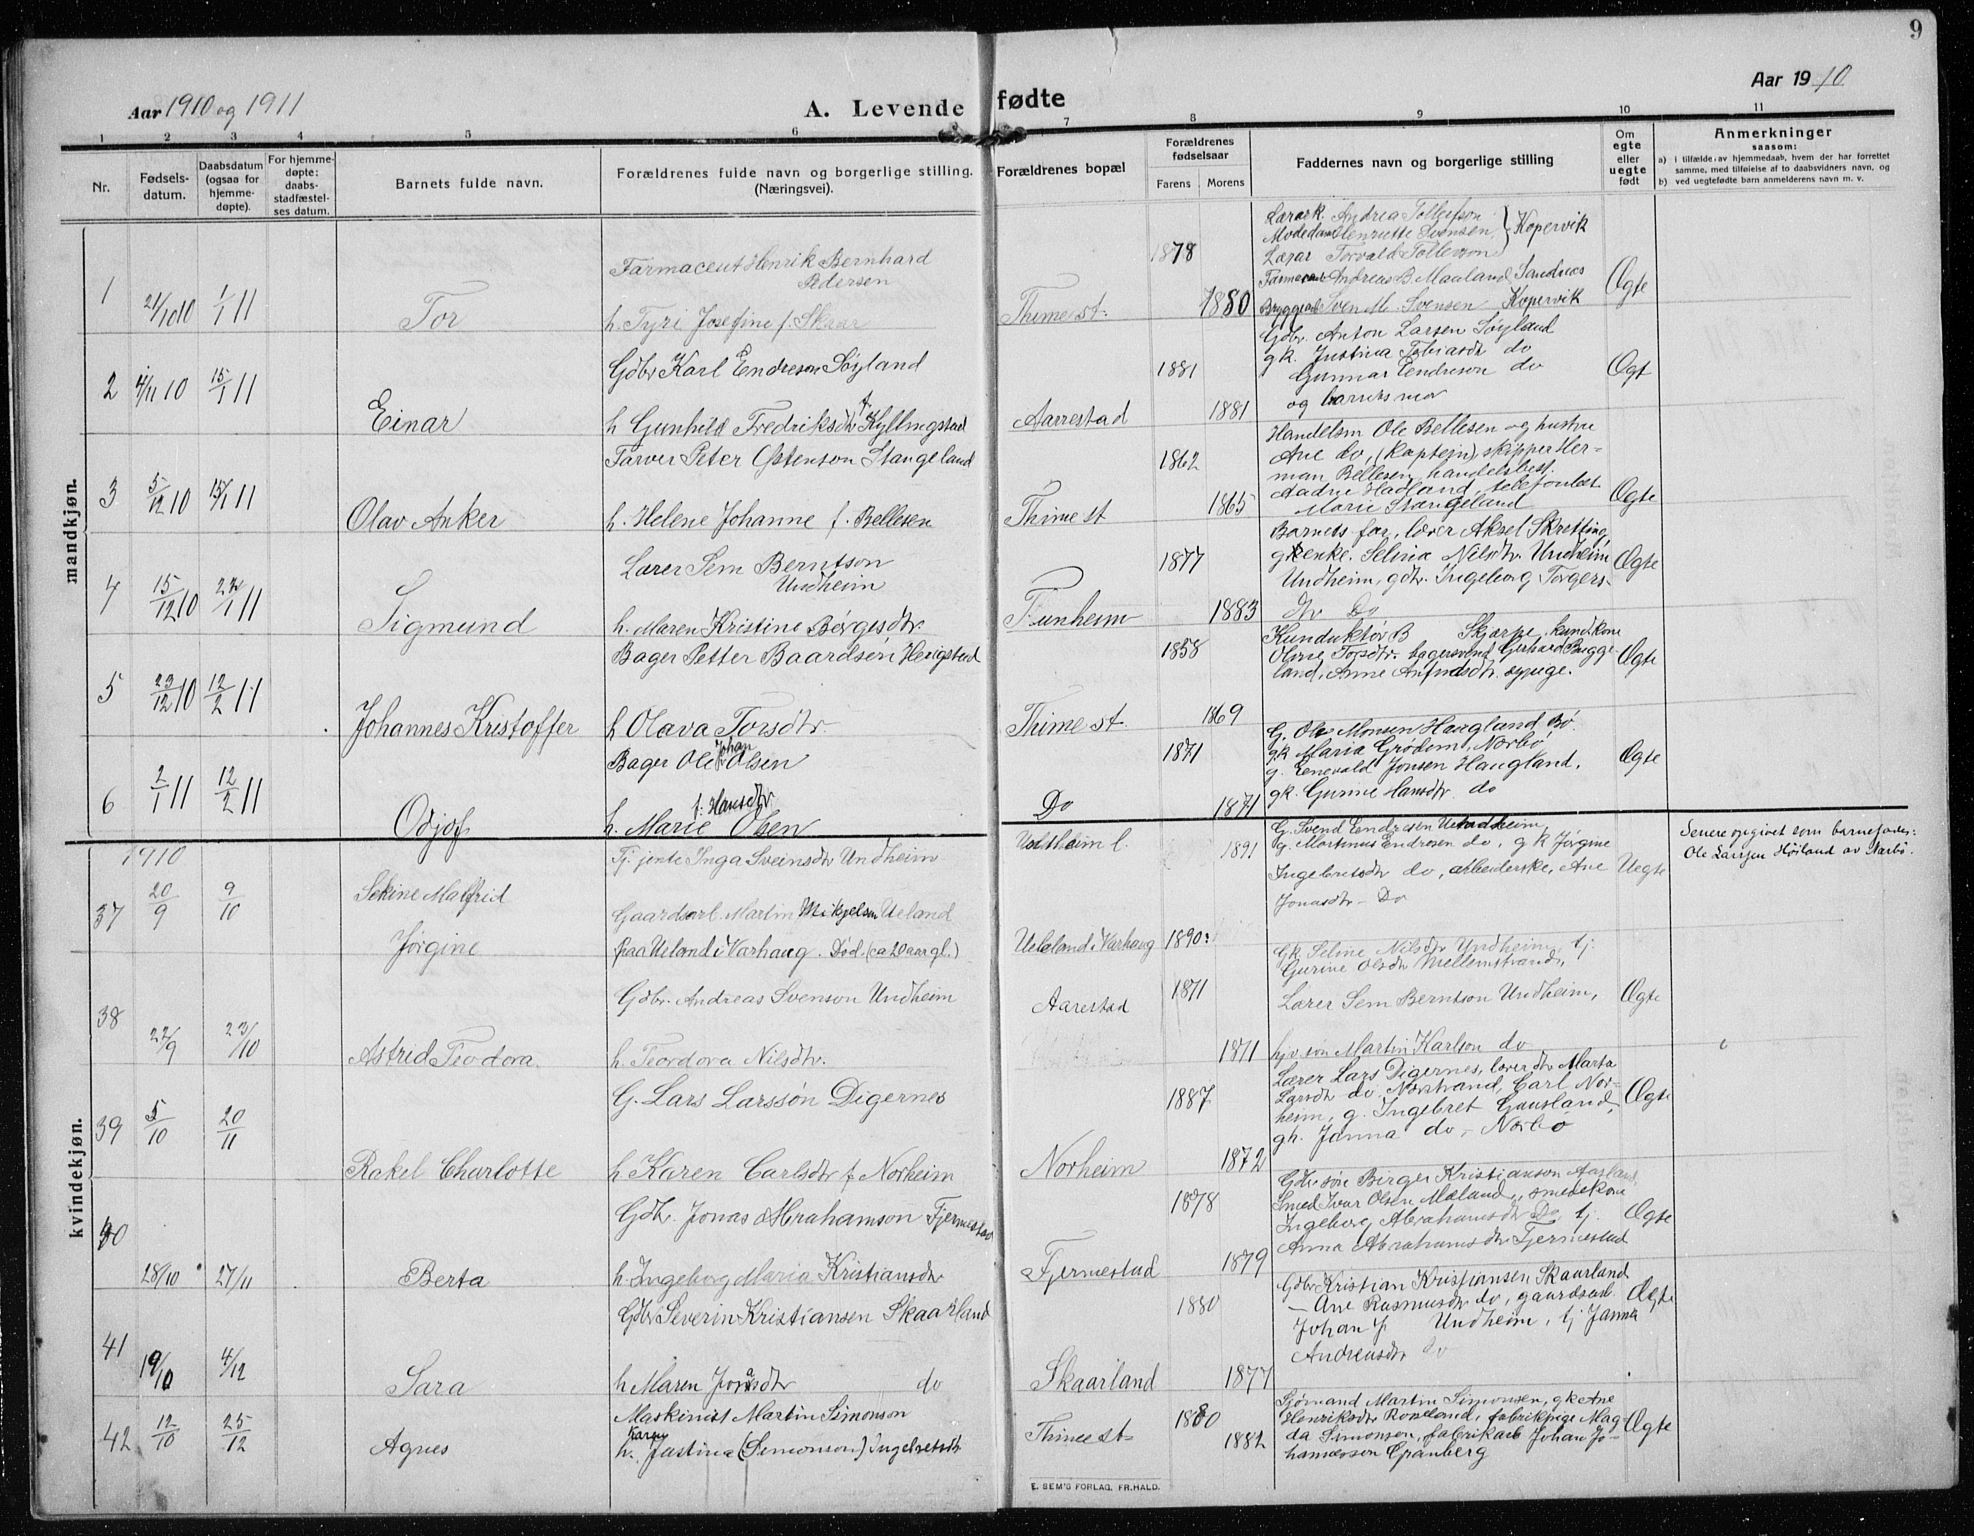 9
Aar 1910 og 1911
A. Levende fødte
Aar 1910
1 2 3 4 5 6 7 8 9 10 11
Nr.
Fødsels-
datum.
Daabsdatum
(ogsaa for
hjemme-
døpte).
For hjemme-
døpte:
daabs-
stadfæstel-
ses datum.
Barnets fulde navn.
Forældrenes fulde navn og borgerlige stilling.
(Næringsvei).
Forældrenes bopæl
Forældrenes
fødselsaar
Farens Morens
Faddernes navn og borgerlige stilling
Om
egte
eller
uegte
født
Anmerkninger
saasom:
a) i tilfælde av hjemmedaab, hvem der har forrettet
samme, med tilføielse af to daabsvidners navn, og
b) ved uegtefødte barn anmelderens navn m. v.
mandkjøn.
1 21/10 10 1/1 11 Tor
Farmaceut Henrik Bernhard
Pedersen
h. Tyri Josefine f. Skaar
Thime st. 1878 1880
Lærark. Andrea Tollefson
Henriette Svensen } Kopervik
Lærar Torvald Tollefson
Andreas B. Maaland Sandnes
Sven M. Svensen Kopervik
Ogte
2 4/11 10 15/1 11 Einar
Gdbr Karl Endreson Søyland
h Gunhild Fredriksdtr f. Kyllingstad
Aarrestad 1881 1881
Gdbr. Anton Larsen Søyland
gk. Justina Tobiasdtr do
Gunnar Endreson do
og barnets mor
Ogt
3 5/12 10 15/1 11 Olav Anker
Farver Peter Østenson Stangeland
h. Helene Johanne f. Bellesen
Thime st 1862 1865
Handelsm Ole Bellesen og hustru
Ane do, (Kaptein), skipper Her-
man Bellesen, handelsbest.
Hadland, telefonist
Marie Stangeland
Ogte
4 15/12 10 22/1 11 Sigmund
Lærer Sem Berntson
Undheim
h. Maren Kristine Børgesdtr.
Tunheim 1877 1883
Barnets far, lærer Aksel Skretting,
genke. Selina Nilsdtr. Undheim
Undheim, gdtr. Ingeborg Torgers-
dtr Do
Ægte
5 23/12 10 12/2 11 Johannes Kristoffer
Bager Petter Baardsen Herigstad
h Olava Torsdtr
Thime st. 1858 1869
Kunduktør B Skjærpe, kund.kone
Oline Torsdtr. bagersvend Gerhard Bygge-
land, Anne sypige.
Ægte
6 2/1 11 12/2 11 Odjof
Bager Ole Johan Olsen
h. Marie f. Hansdtr Olsen
Do 1871 1871
G. Ole Monsen Haugland Bø
gk Maria Grødem, Norbø
g. Enevald Jonsen Haugland.
gk. Gurine Hansdtr do
Ægte
kvindekjøn.
1910
37 20/9 9/10 Sekine Malfrid
Jørgine
Tj. jente Inga Sveinsdtr Undheim
Gaardsarb. Martin Mikjelsen Ueland
fraa Ueland i Varhaug. Død. (ca 20 aar gl.)
Undheim l. 1891
Ueland i Varhaug 1890:
G. Svend Endresen Undheim,
g. Martenus Endresen do, gk Jørgine
Ingebretsdtr do, arbeiderske, Ane
Jonasdtr - Do
Uegte
Senere opgivet som barnefader:
Ole Larsen Høiland av Nærbø.
38 22/9 23/10 Astrid Teodora.
Gdbr. Andreas Svenson Undheim
h. Teordora Nilsdtr.
Aarestad 1871 1871
Gk Seline Nilsdtr Undheim, tj.
Gurine Olsdtr Mellemstrand,
Lærer Sem Berntson Undheim,
hjv. søn Martin Karlson do
Ægte
39 5/10 20/11 Rakel Charlotte
G. Lars Larssøn Digernes
h Karen Carlsdtr f Norheim
Norheim 1887 1872
Lærer Lars Digernes, lærerdtr Marta
Larsdtr do Nærstrand, Carl Nor-
heim, g. Ingebret Gausland,
gk. Janna do - Norbø
Ægte
40 28/10 27/11 Berta
Gdbr. Jonas Abrahamson Fjermestad
h. Ingeborg Maria Kristiansdtr
Fjermestad 1878 1879
Gdbr søn Birger Kristianson Aasland,
Smed Ivar Olsen Mæland, smedekone
Ingeborg Abrahamsdtr Do, tj.
Anna Abrahamsdtr Fjermestad
Ægte
41 19/10 4/12 Sara
Gdbr Severin Kristiansen Skaarland
h Maren Jonasdtr do
Skaarland 1880 1877
Gdbr Kristian Kristiansen Skaarland
- Ane Rasmusdtr do, gaardsarb.
Johan J. Undheim, tj Janna
Andreasdtr do
Ægte
42 12/10 25/12 Agnes
Maskinist Martin Simonson
h. Karen Justina (Simonson) Ingebretsdtr
Thime st. 1880 1882
Sjømand Martin Simonsen, gk Ane
Henriksdtr Roseland, fabrikpige Mag-
da Simonsen, fabrikarb Johan Jo-
hannesson Granberg
Ægte
E. SEM'S FORLAG, FR.HALD.